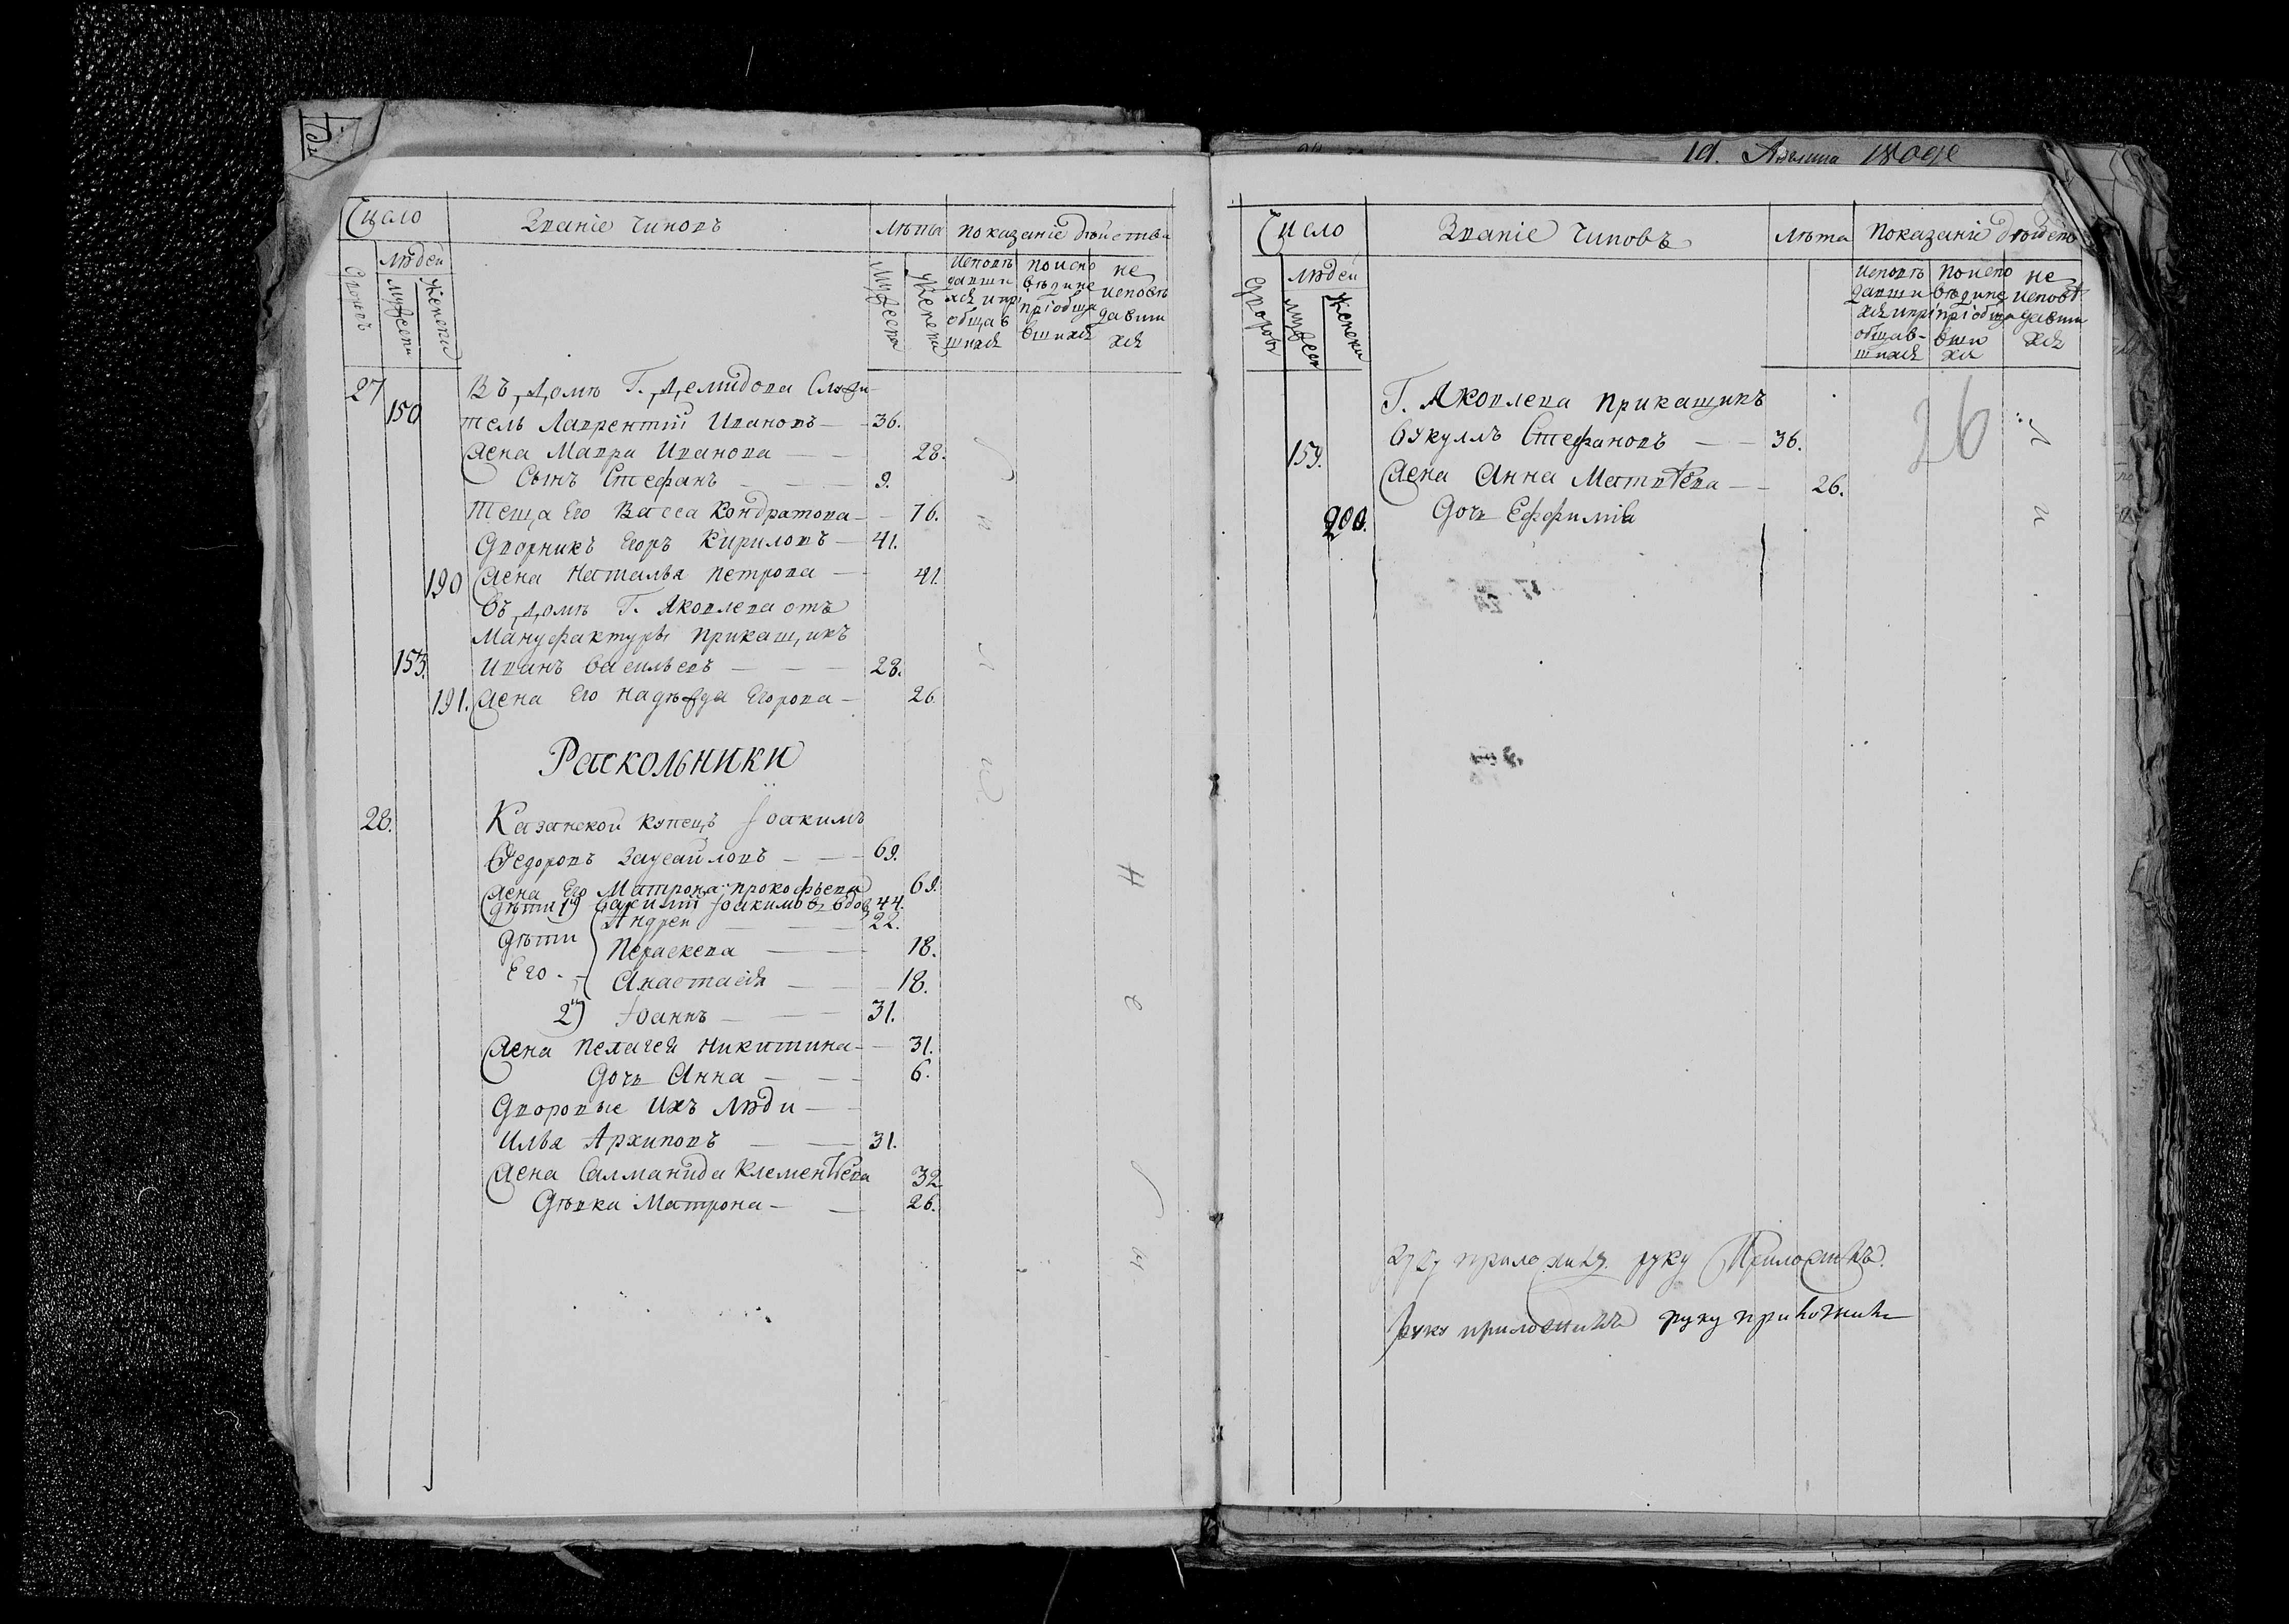 Число
Званіе чиновъ
Лѣта
Показаніе дѣйства
Дворовъ
Людей
Мужеска
Женска
Мужеска
Женска
Исповѣ
давши
хся и прі
общав
шихся
по испо
вѣди не
пріобща
вшихся
не
исповѣ
давши
хся
27
150
Въ домѣ Г. Демидова Служи-
тель Лаврентій Ивановъ — 36.
Жена Мавра Иванова — 28.
Сынъ Стефанъ — 9.
Теща Его Васса Кондратова — 76.
Дворникъ Егоръ Кириловъ — 41.
190 Жена Наталья Петрова — 41.
Въ домѣ Г. Яковлева отъ
Мануфактуры Прикащикъ
153. Иванъ Васильевъ — 28.
191. Жена Его Надѣжда Егорова — 26
Раскольники
28. Казанской купецъ Іоакимъ
Ѳедоровъ Заусайловъ — 69.
Жена Его Матрона Прокофьева 69.
Дѣти 1й) Василій Іоакимов вдов 44.
Дѣти Его
Андрей — 22.
Параскева — 18.
Анастасія — 18.
2й) Іоаннъ — 31.
Жена Пелагея Никитина — 31.
Дочь Анна — 6.
Дворовые Ихъ Люди —
Илья Архиповъ — 31.
Жена Салманида Клементьева 32
Дѣвка Матрона — 26.
Число
Званіе чиновъ
Лѣта
Показаніе дѣйств
Дворовъ
Людей
Мужеск
Женска
Исповѣ
давши
хся и прі
общав-
шихся
по испо
вѣди не
пріобща
вши
хся
не
исповѣ
давши
хся
26
Г. Яковлева Прикащикъ
159. Вукуллъ Стефановъ — 36.
Жена Анна Матвѣева — 26.
200. Дочь Ефѳимія
руку Приложилъ.
руку приложилъ руку приложилъ